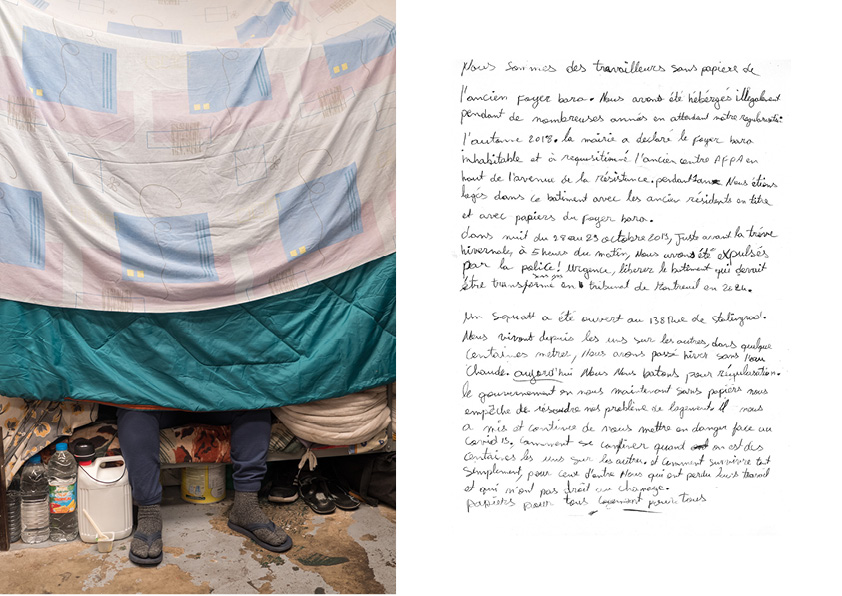 Nous sommes des travailleurs sans papiere de
l'ancien Foyer bara. Nous avons été hébergés illégalement
pendant de nombreuses années en attendant nôtre regularisatio.
l'automne 2018. la mairie a declaré le foyer bara
inhabitable et à requisitionné l'ancien centre AFPA en
haut de l'avenue de la résistance. pendant 1an Nous étions
logés dans ce bâtiment avec les ancien résidents en titre
et avec papiers du foyer bara.
dans nuit du 28 au 29 octobre 2019, Juste avant la trêve
hivernale, à 5 heurs du matin, Nous avons été expulsés
par la police! Urgence, liberer le batiment qui devait
être transformé en tribunal de Montreuil en 2024.
Un Squatt a été ouvert au 138 Rue de Stalingrad.
Nous vivont depuis les uns sur les autres, dans quelque
Centaines metres, Nous avons passé hiver sans l'eau
Chaude. aujourd'hui Nous Nous batons pour régularisation.
le gouvernement en nous maintenant sans papiers nous
empêche de résoudre nos problème de logement. Il nous
a mis et continue de nous mettre en danger face au
Covid19. Comment se confiner quand on est des
centaines les uns sur les autres. et comment survivre tout
simplement, pour ceux d'entre Nous qui ont perdu leurs travail
et qui n'ont pas droit au chomage.
papiers pour tous logement pour tous